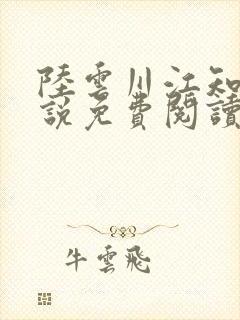 陸雲川江知
說免費閱讀
牛雲飛